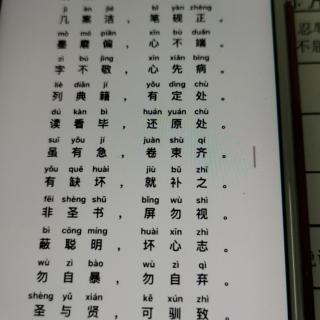 jī àn jié bǐ yàn zhèng
几案洁，笔砚正。
mò mó piān xīn bù duān
墨磨偏，心不端。
zì bú jìng xīn xiān bìng
字不敬，心先病。
liè diǎn jí yǒu dìng chù
列典籍，有定处。
dú kàn bì huán yuán chù
读看毕，还原处。
suī yǒu jí juàn shù qí
虽有急，卷束齐。
yǒu quē huài jiù bǔ zhī
有缺坏，就补之。
fēi shèng shū bǐng wù shì
非圣书，屏勿视。
bì cōng míng huài xīn zhì
蔽聪明，坏心志。
wù zì bào wù zì qì
勿自暴，勿自弃。
shèng yǔ xián kě xùn zhì
圣与贤，可驯致。